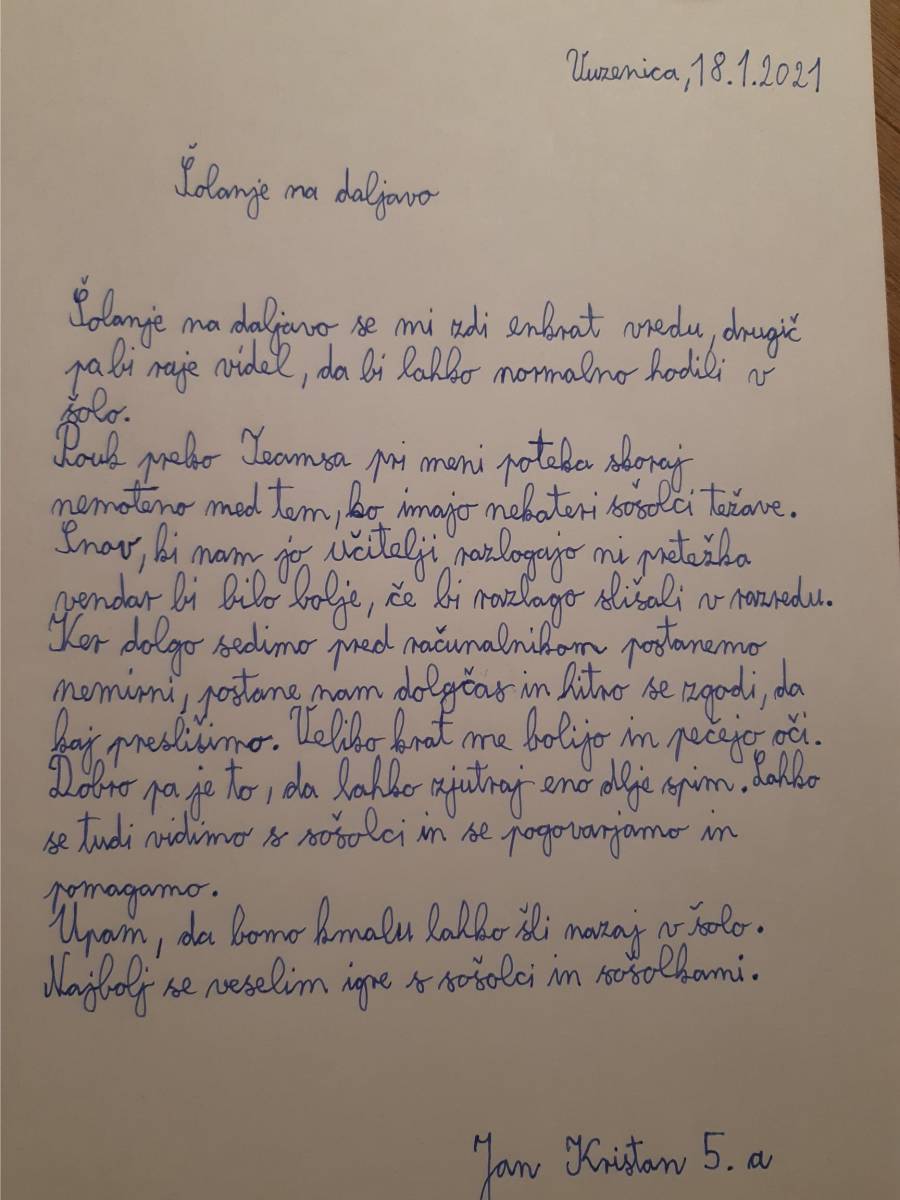 Vuzenica, 18.1.2021
Šolanje na daljavo
Šolanje na daljavo se mi zdi enkrat vredu, drugič
pa bi raje videl, da bi lahko normalno hodili v
šolo.
Pouk preko Teamsa pri meni poteka skoraj
nemoteno med tem, ko imajo nekateri sošolci težave.
Snov, ki nam jo učitelji razlogajo ni pretežka
vendar bi bilo bolje, če bi razlago slišali v razredu.
Ker dolgo sedimo pred računalnikom postanemo
nemirni, postane nam dolgčas in hitro se zgodi, da
kaj preslišimo. Veliko krat me bolijo in pečejo oči.
Dobro pa je to, da lahko zjutraj eno dlje spim. Lahko
se tudi vidimo s sošolci in se pogovarjamo in
pomagamo.
Upam, da bomo kmalu lahko šli nazaj v šolo.
Najbolj se veselim igre s sošolci in sošolkami.
Jan Kristan 5. a